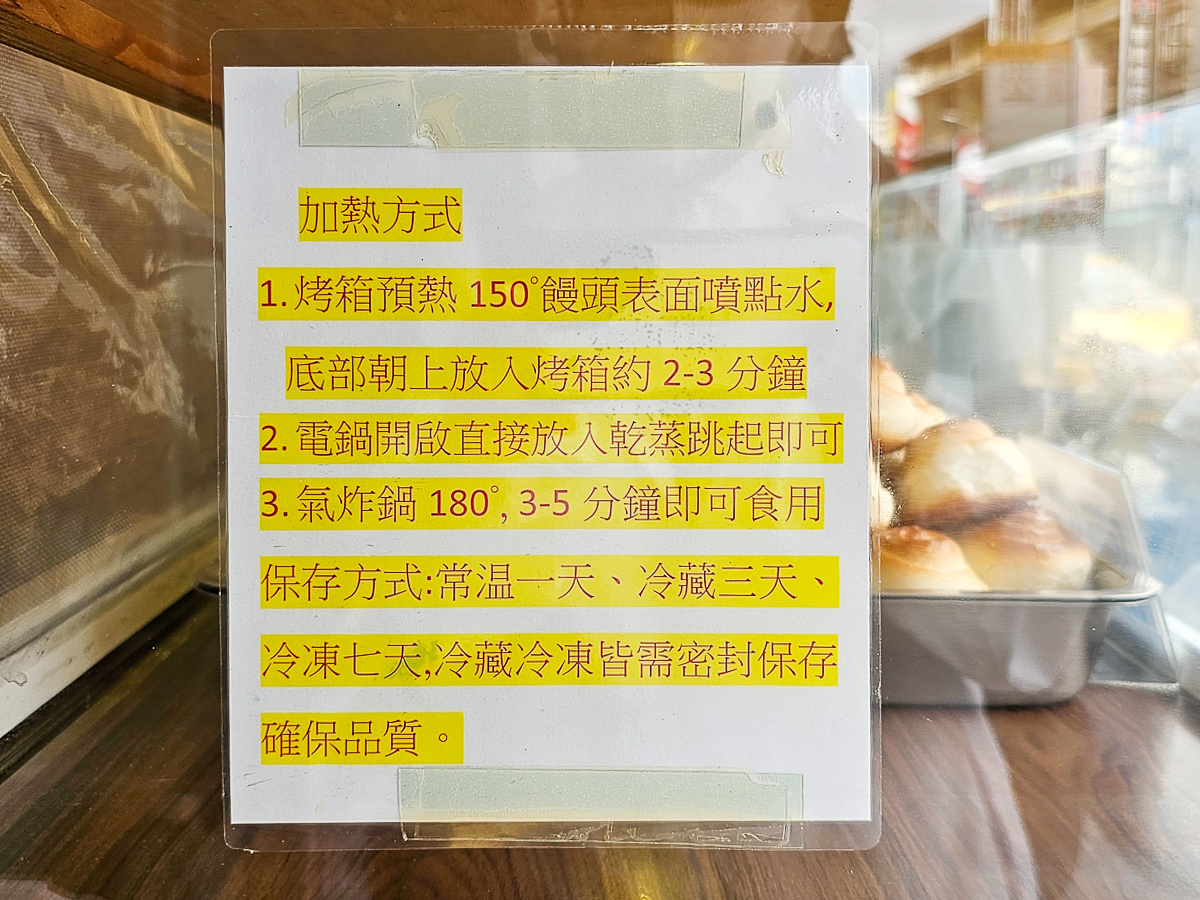 加熱方式
1. 烤箱預熱 150°饅頭表面噴點水,
底部朝上放入烤箱約 2-3 分鐘
2. 電鍋開啟直接放入乾蒸跳起即可
3. 氣炸鍋 180°, 3-5 分鐘即可食用
保存方式:常温一天、冷藏三天、
冷凍七天,冷藏冷凍皆需密封保存
確保品質。